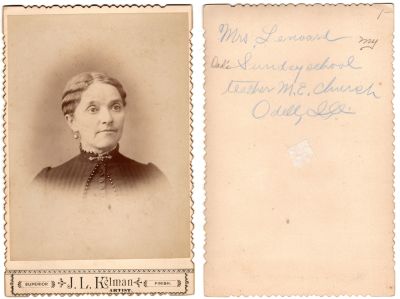 SUPERIOR J. L. Kelman FINISH.
ARTIST.
Mrs. Lenoard
my
Dad's Sunday school
teacher M.E. Church
Odell, Ill.